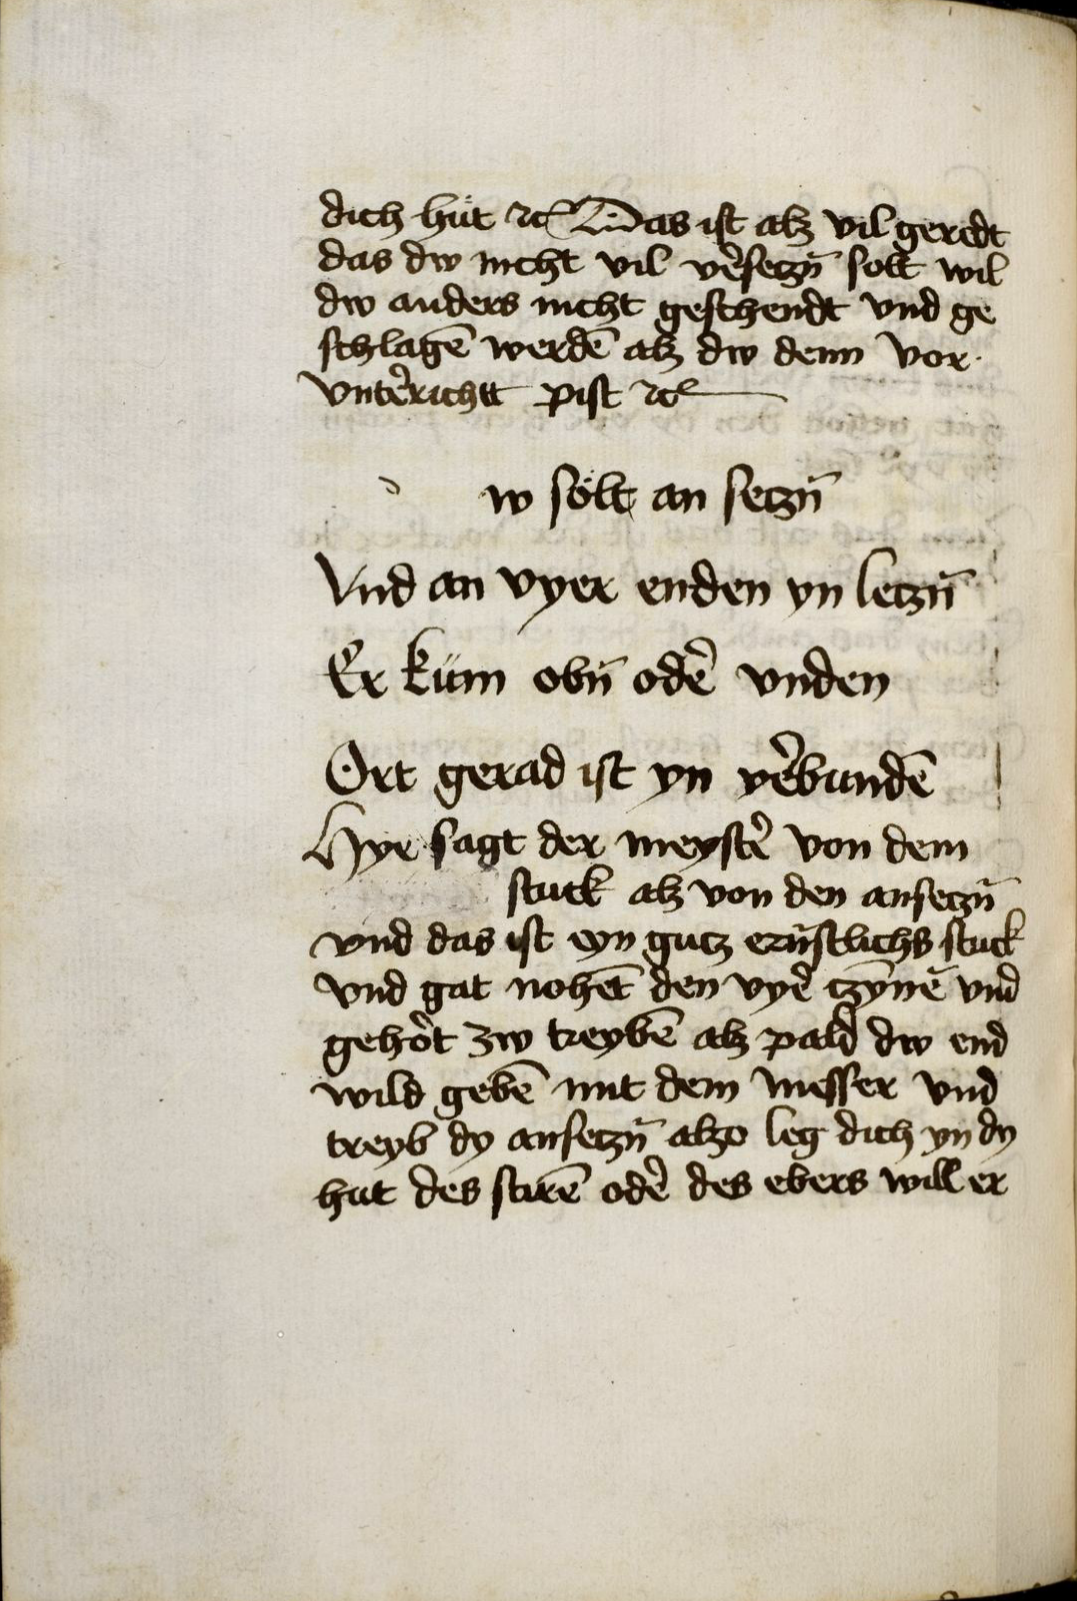 dich hüt ꝛc Das ist alz vil geredt
das dw nicht vil v̉seczn̄ solt wil
dw anders nicht geschendt vnd ge
schlagē werdē alz dw denn vor
vntẻrichtt pist ꝛc
d w sölt an seczn̄
Vnd an vyer enden yn leczn̄
Er küm obn̄ odẻ vnden
Ort gerad ist yn vẻbundē
Hye sagt der meystẻ von dem
stuck alz von den anseczn̄
vnd das ist eyn gutz ernstlichs stuck
vnd gat nohet̄ den vyẻ czȳnē vnd
gehȯ̉t zw treybē alz pald dw end
wild gebē mit dem messer vnd
treyb dy anseczn̄ alzo leg dich yn dy
hut des stirē odẻ des ebers will er